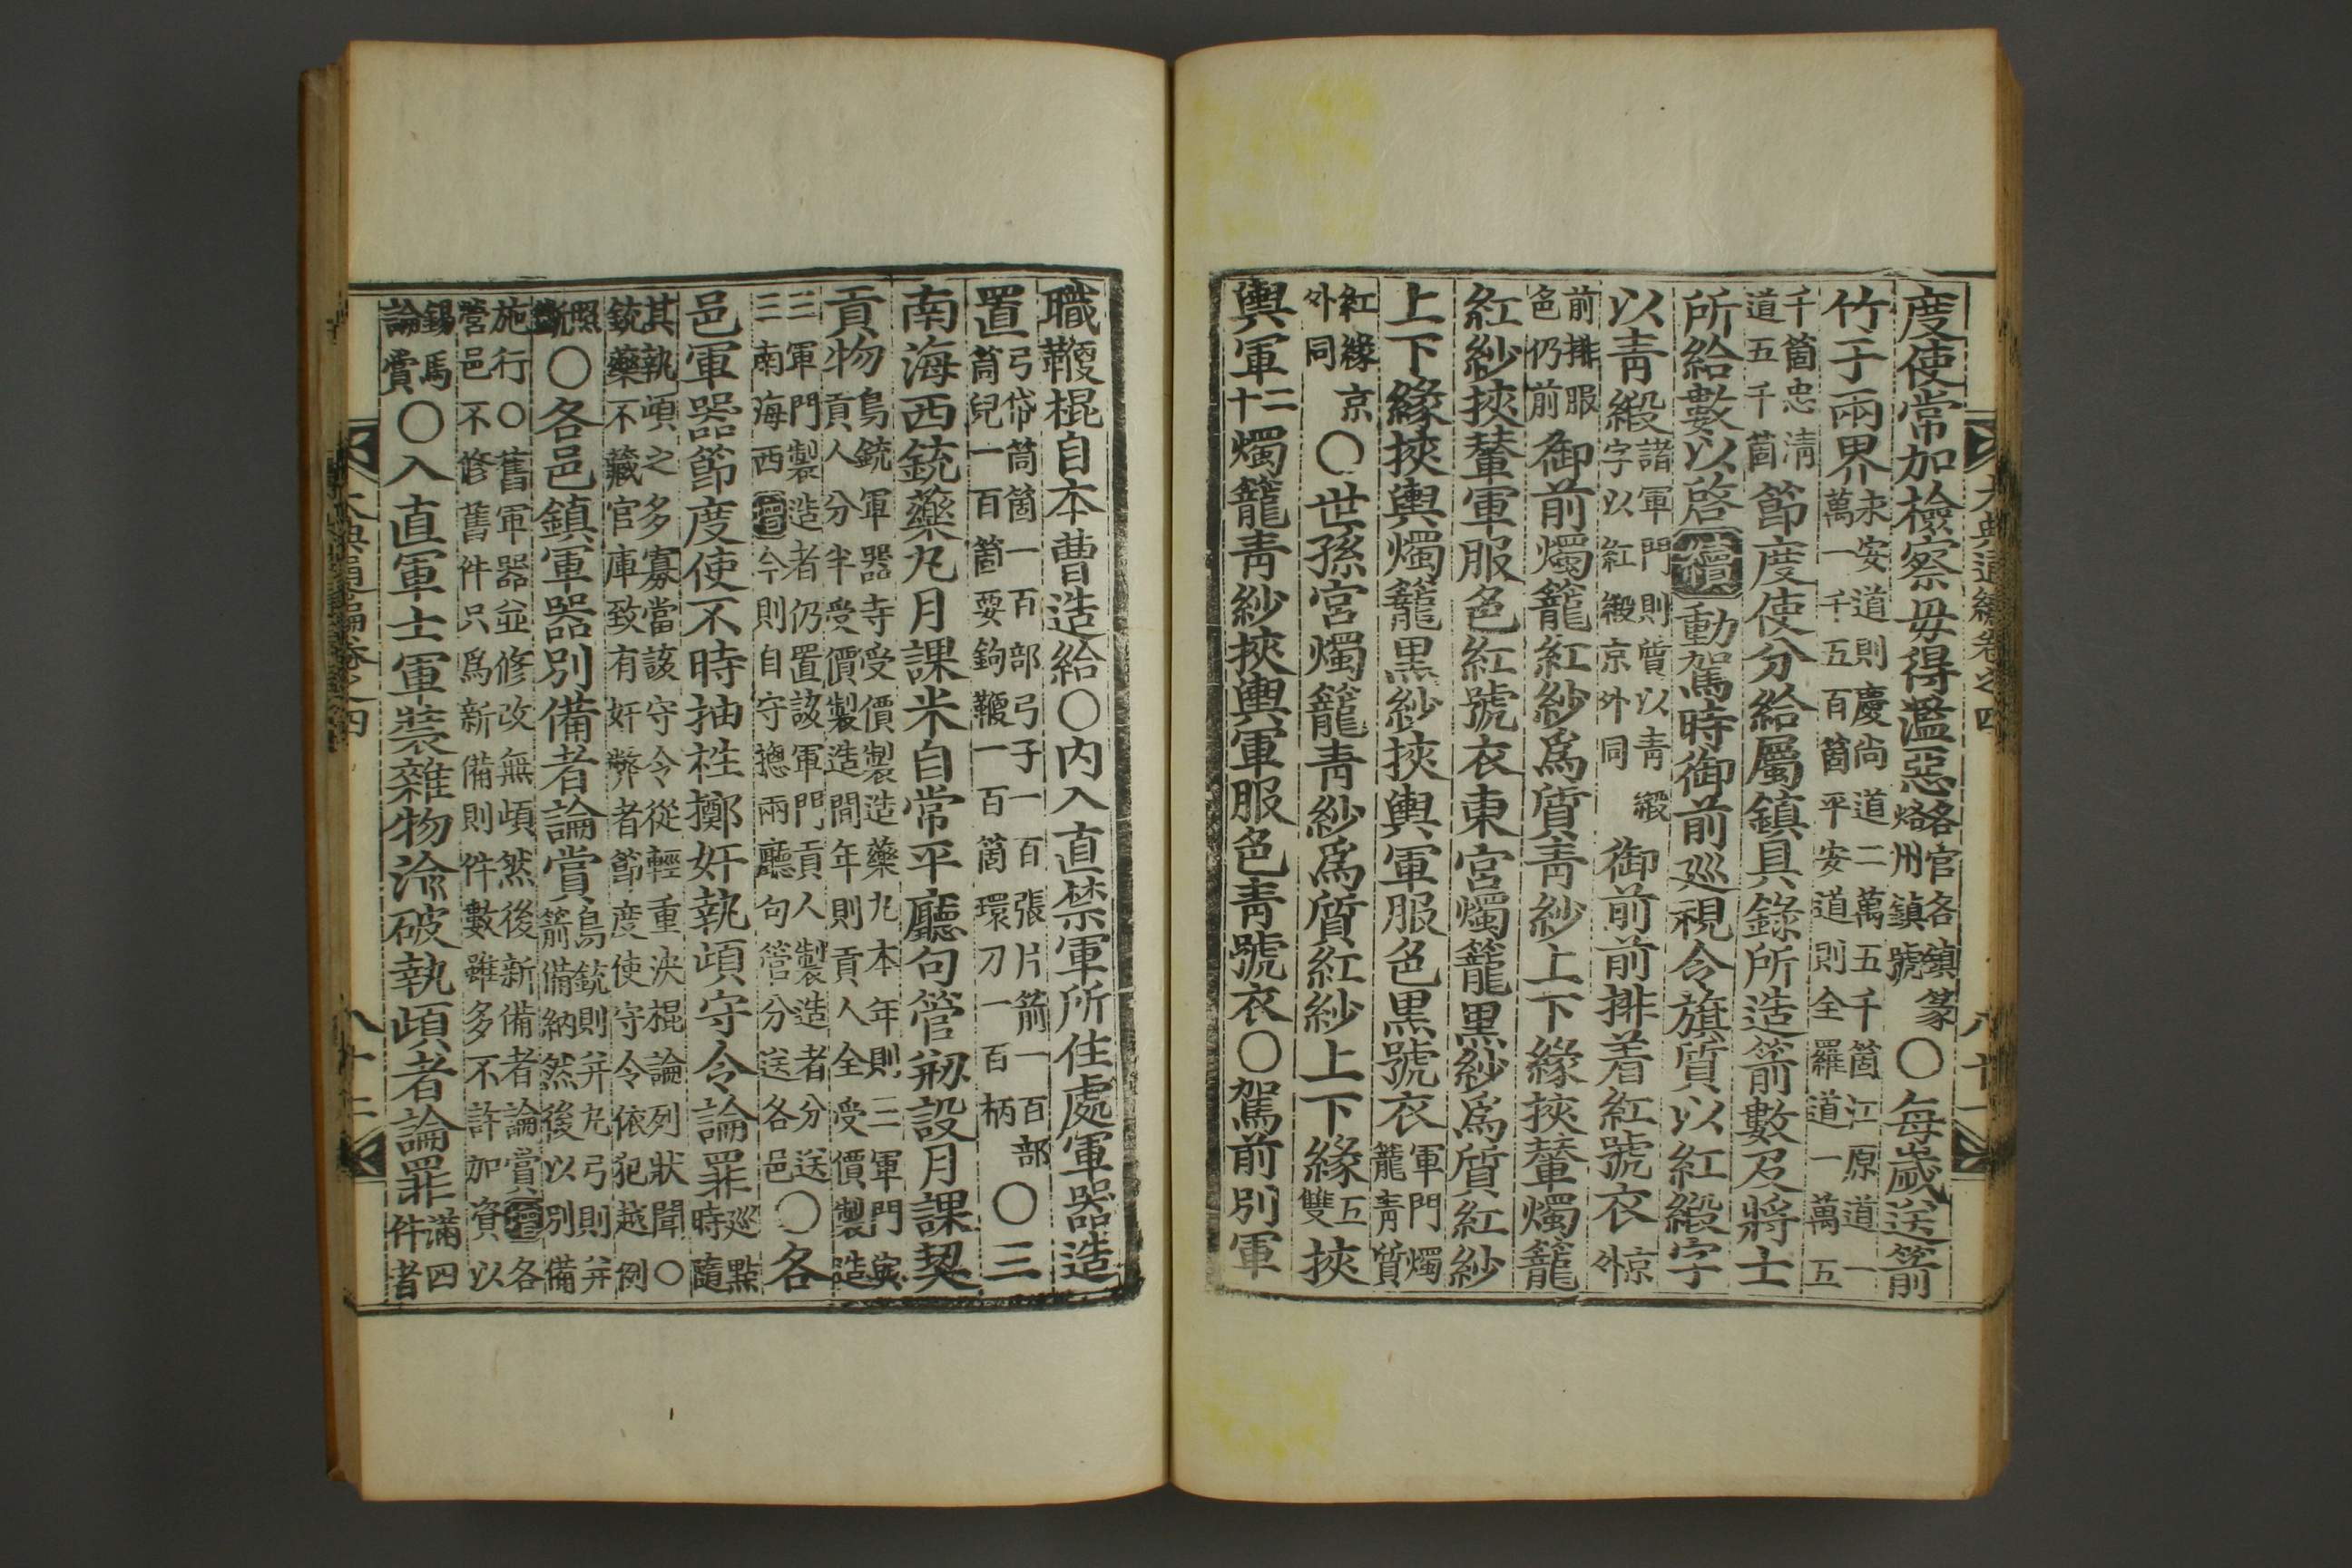 大典通編卷之四
度使常加檢察毋得濫惡烙官各鎭篆烙州鎭號○每歲送箭
竹于兩界永安道則慶尙道二萬五千箇江原道一萬一千五百箇平安道則全羅道一萬五
千箇忠淸道五千箇節度使分給屬鎭具錄所造箭數及將士
所給數以啓續動駕時御前巡視令旗質以紅緞字
以靑緞諸軍門則質以靑緞字以紅緞京外同御前前排着紅號衣京外
前排服色仍前御前燭籠紅紗爲質靑紗上下緣挾輦燭籠
紅紗挾輦軍服色紅號衣東宮燭籠黑紗爲質紅紗
上下緣挾輿燭籠黑紗挾輿軍服色黑號衣軍門燭籠靑質
紅緣京外同○世孫宮燭籠靑紗爲質紅紗上下緣五雙挾
輿軍十二燭籠靑紗挾輿軍服色靑號衣○駕前別軍
職鞭棍自本曹造給○內入直禁軍所住處軍器造
置弓帒筒箇一百部弓子一百張片箭一百部筒兒一百箇要鉤鞭一百箇環刀一百柄○三
南海西銃藥丸月課米自常平廳句管刱設月課契
貢物鳥銃軍器寺受價製造藥丸本年則三軍門與貢人分半受價製造間年則貢人全受價製造
三軍門製造者仍置該軍門貢人製造者分送三南海西增今則自守摠兩廳句管分送各邑○各
邑軍器節度使不時抽栍擲奸執頉守令論罪巡點時隨
其執頉之多寡當該守令從輕重決棍論列狀聞○銃藥不藏官庫致有奸弊者節度使守令依犯越例
照斷○各邑鎭軍器別備者論賞鳥銃則幷丸弓則幷箭備納然後以別備
施行○舊軍器並修改無頉然後新備者論賞增各營邑不修舊件只爲新備則件數雖多不許加資以
錫馬論賞○入直軍士軍裝雜物渝破執頉者論罪滿四件者
大典通編卷之四
八十二